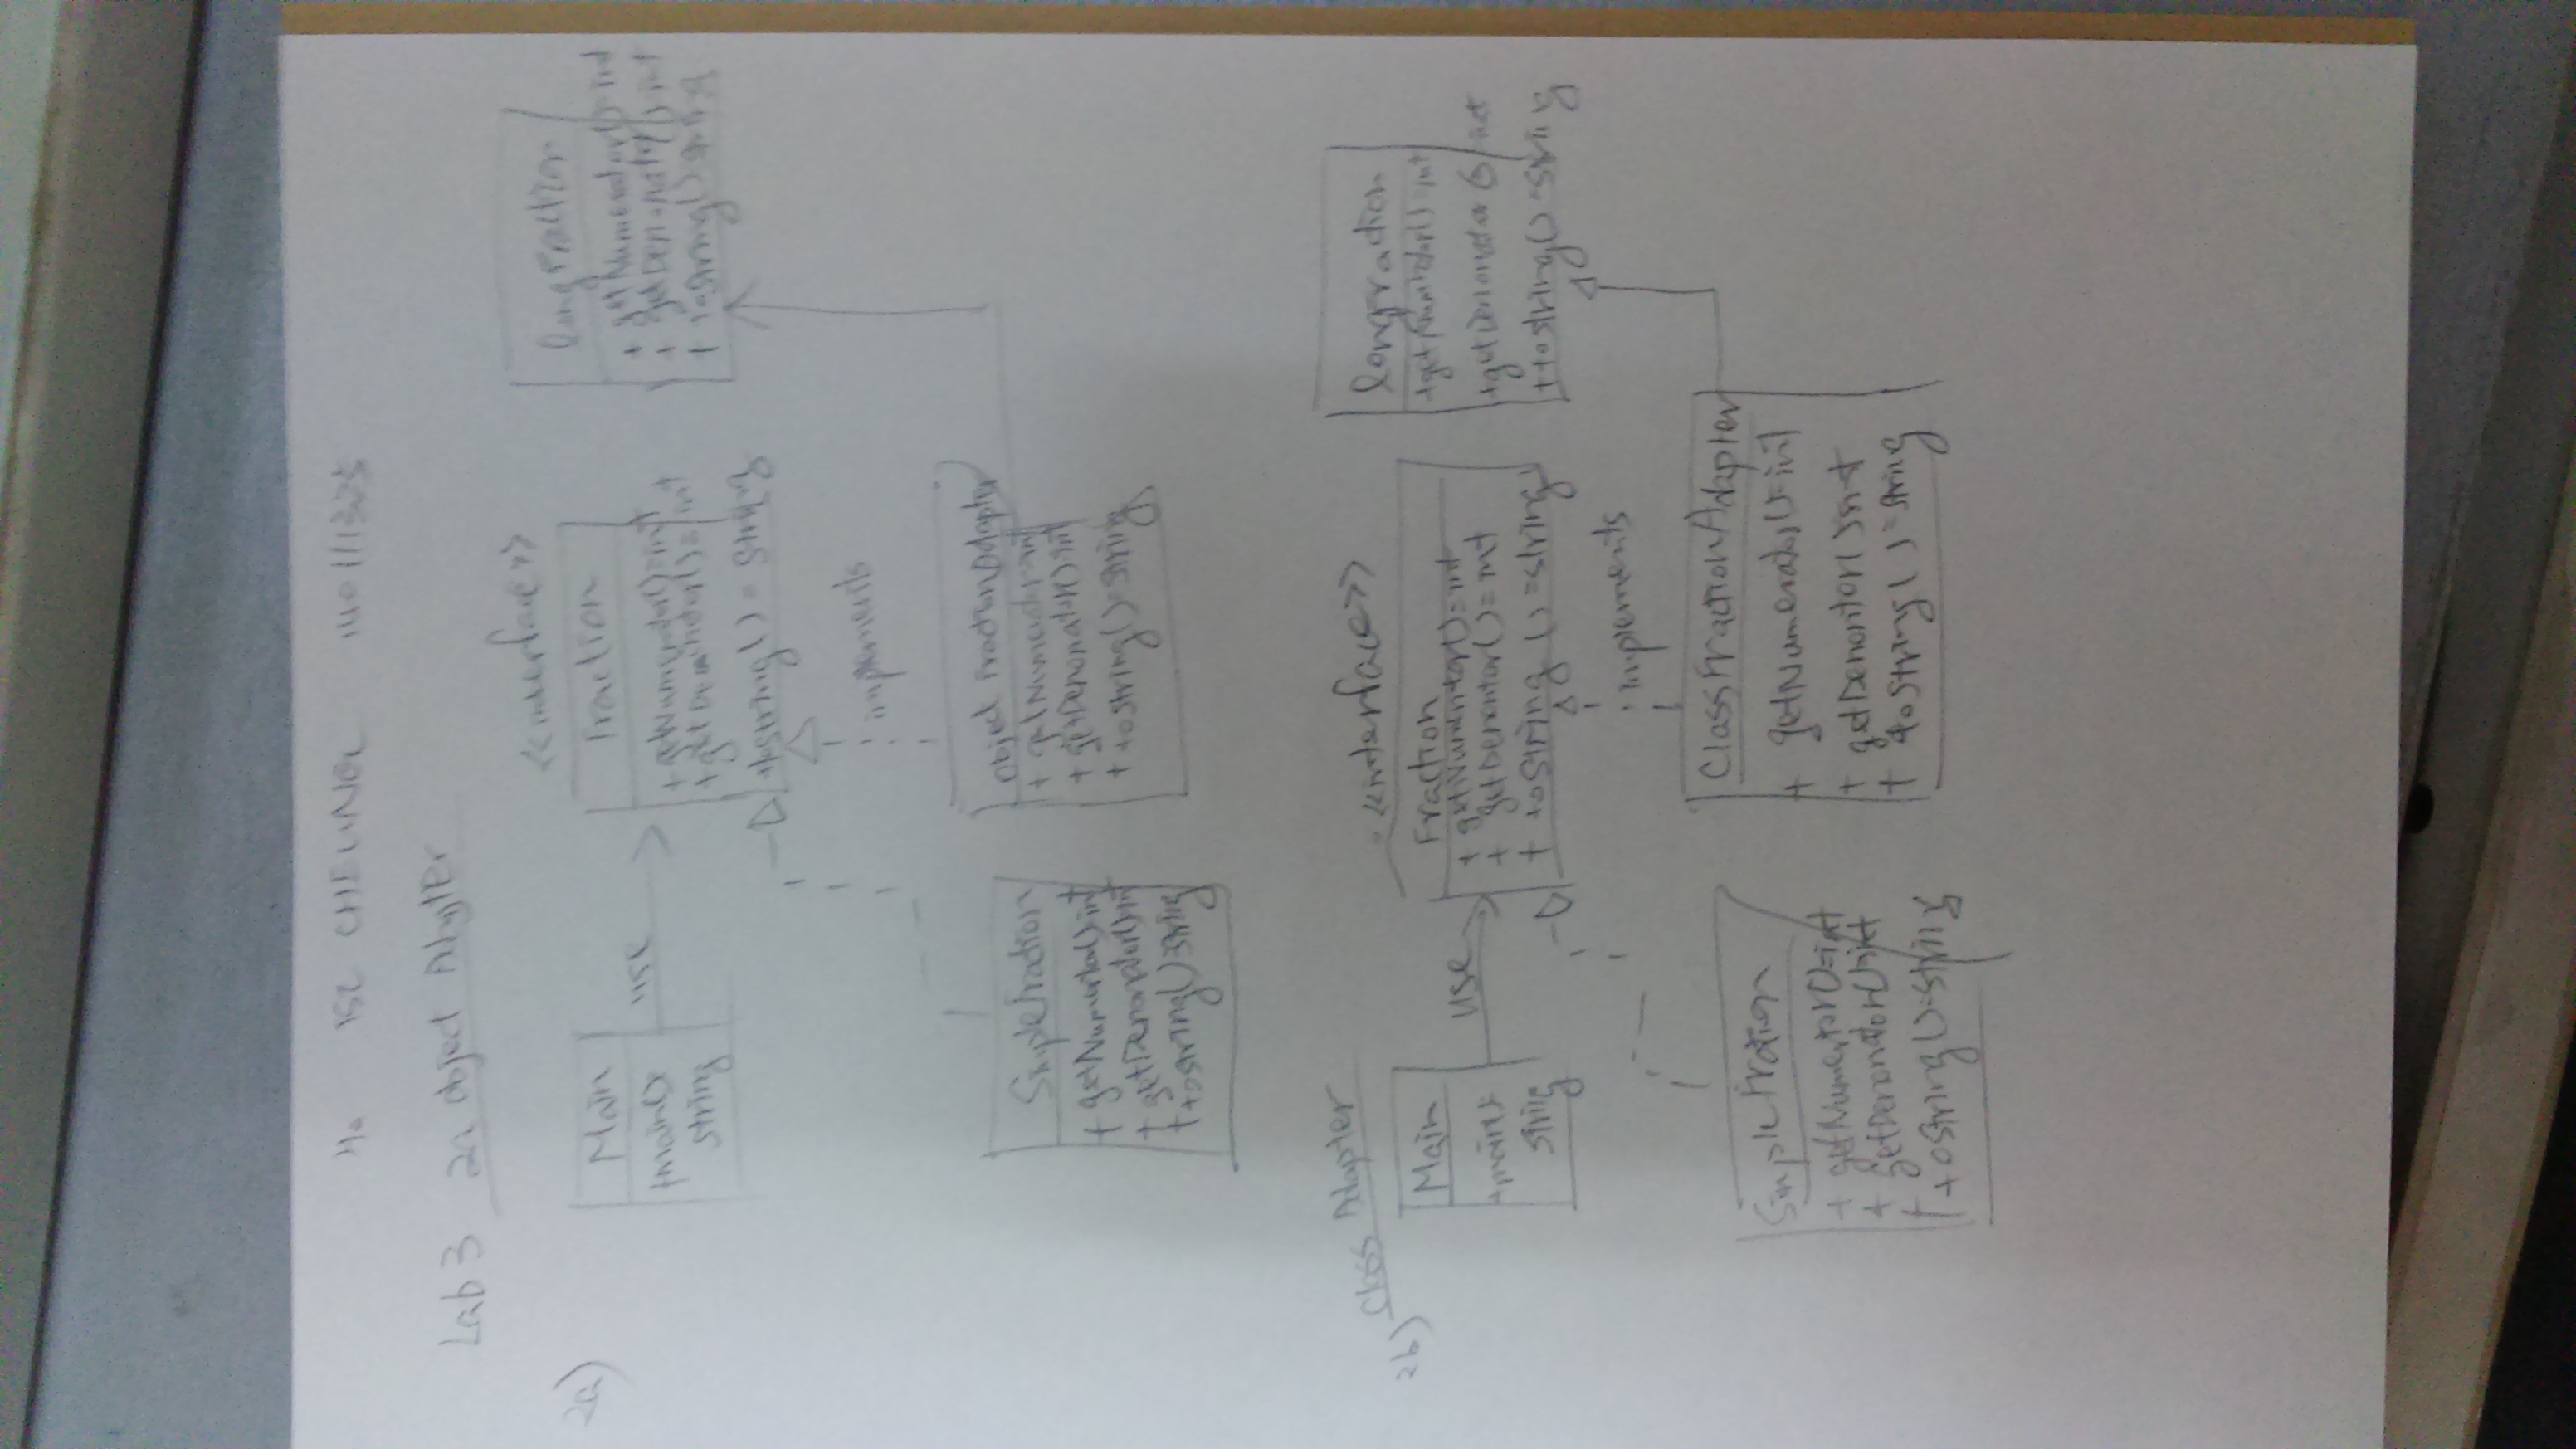 Ho TSZ CHEUNG
Lab 3 2a object Adapter
2a)
Main
+main():
string
use
<<interface>>
Fraction
+ getNumerator()=int
+toString() = String
longFraction
+ getNumerator()=int
+ getDenonator():int
+ toString():string
implements
SimpleFraction
+ getNumertor():int
+ getDenonator():int
+ toString():string
object FractionAdapter
+ getNumerator:int
+ getDenonator():int
+ toString()=string
2b) Class Adapter
Main
+main():
string
use
<<interface>>
Fraction
+ getNumentor()=int
+ getDenontor()=int
+ toString ()=string
longFraction
+get
+getDenonator () int
+toString()=string
implements
SimpleFration
+ getNumertor()=int
+ getDenonator()=int
+ toString()=string
ClassFractionAdapter
+ getNumerator()=int
+ getDenontor():int
+ toString()=string